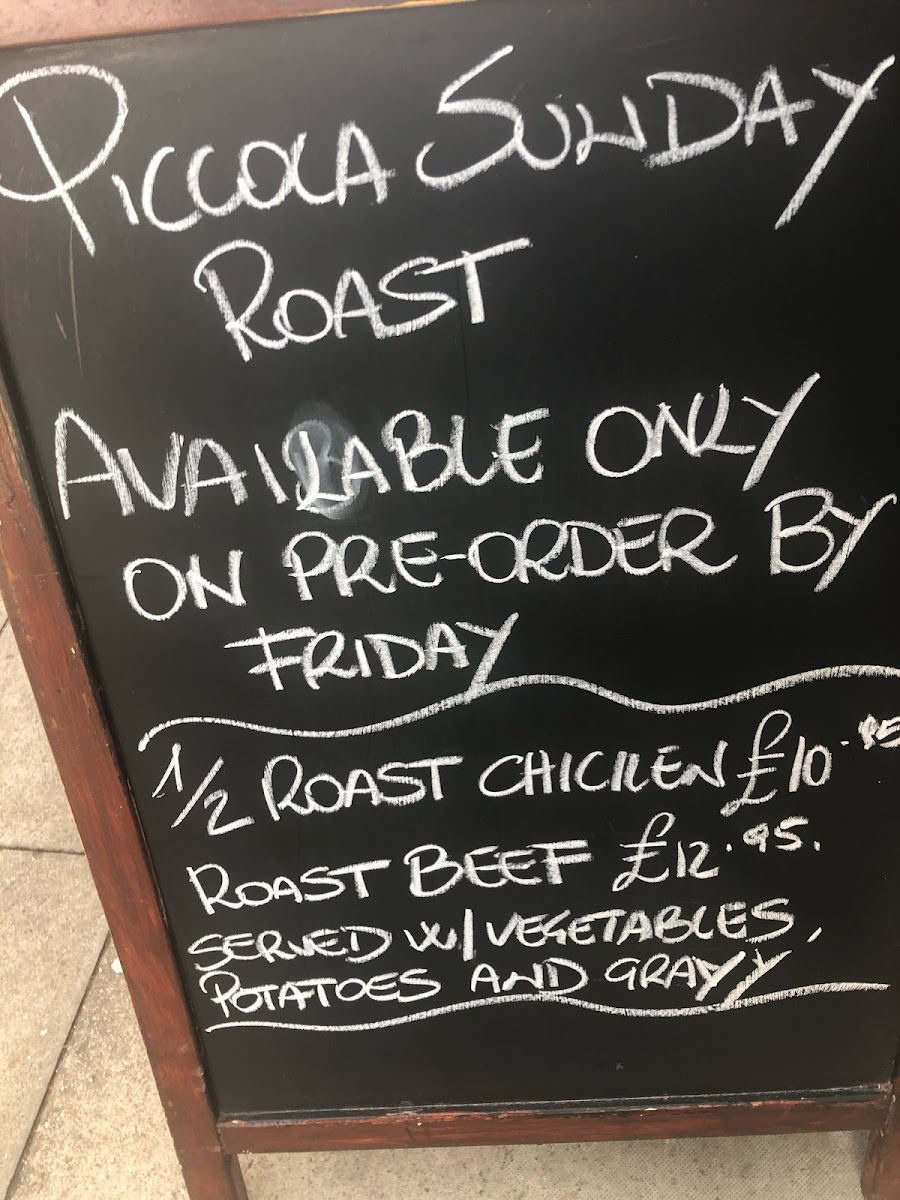 PICCOLA SUNDAY
ROAST
AVAILABLE ONLY
ON PRE-ORDER BY
FRIDAY
1/2 ROAST CHICKEN £10.95
ROAST BEEF £12.95.
SERVED W/VEGETABLES,
POTATOES AND GRAVY